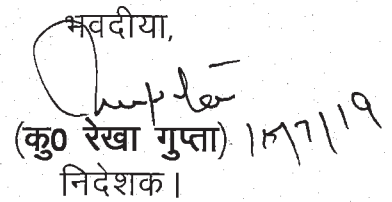 भवदीया,
Gupta
(कु0 रेखा गुप्ता) 15/7/19
निदेशक।